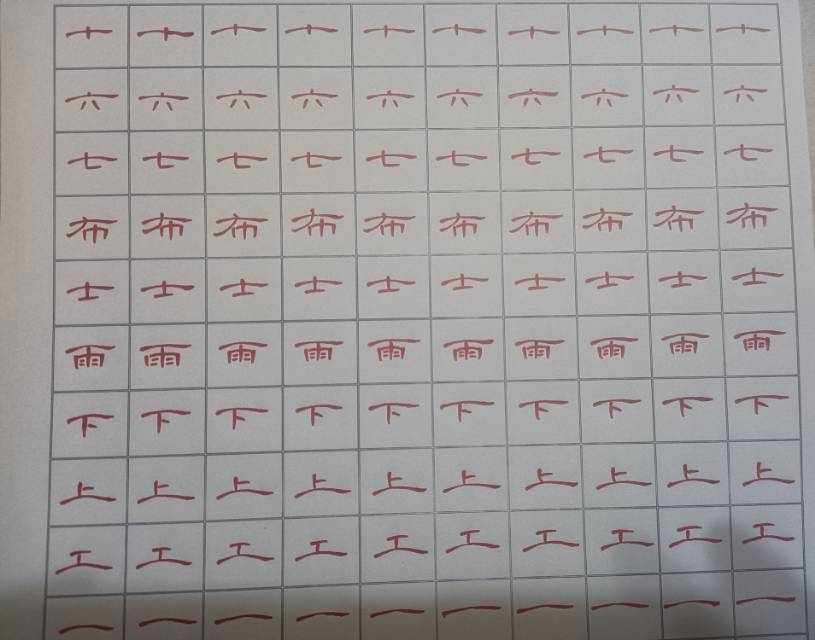 十十十十十十十十十十
六六六六六六六六六六
七七七七七七七七七七
布布布布布布布布布布
士士士士士士士士士士
雨雨雨雨雨雨雨雨雨雨
下下下下下下下下下下
上上上上上上上上上上
工工工工工工工工工工
一一一一一一一一一一